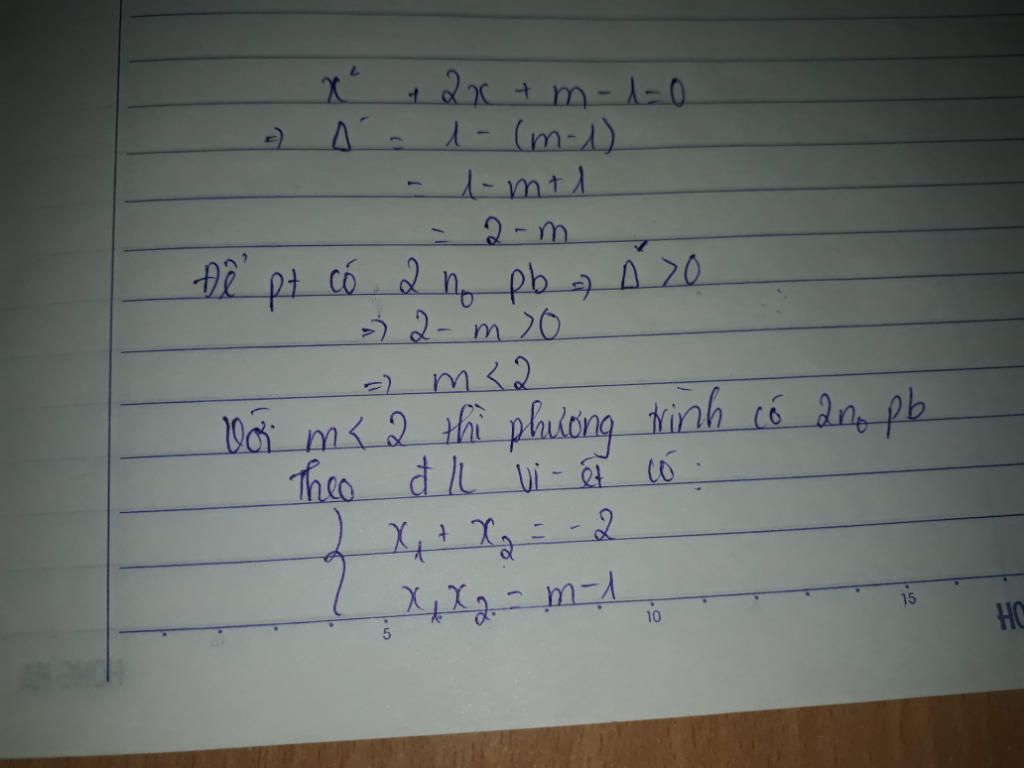 x² + 2x + m - 1 = 0
=> Δ' = 1 - (m-1)
= 1 - m + 1
= 2 - m
Để pt có 2 n₀ pb => Δ' > 0
=> 2 - m > 0
=> m < 2
Với m < 2 thì phương trình có 2n₀ pb
Theo đ/l vi-ét có:
{ x₁ + x₂ = -2
x₁x₂ = m - 1
5 10 15
HO